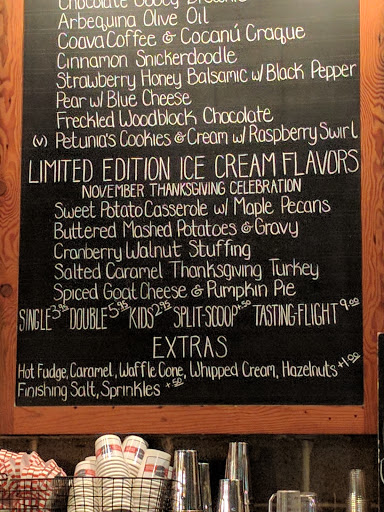 Chocolate Gooey Brownie
Arbequina Olive Oil
Coava Coffee & Cocanú Craque
Cinnamon Snickerdoodle
Strawberry Honey Balsamic w/ Black Pepper
Pear w/ Blue Cheese
Freckled Woodblock Chocolate
(v) Petunia's Cookies & Cream w/ Raspberry Swirl
LIMITED EDITION ICE CREAM FLAVORS
NOVEMBER THANKSGIVING CELEBRATION
Sweet Potato Casserole w/ Maple Pecans
Buttered Mashed Potatoes & Gravy
Cranberry Walnut Stuffing
Salted Caramel Thanksgiving Turkey
Spiced Goat Cheese & Pumpkin Pie
SINGLE 3.95 DOUBLE 5.95 KIDS 2.95 SPLIT-SCOOP +.50 TASTING-FLIGHT 9.00
EXTRAS
Hot Fudge, Caramel, Waffle Cone, Whipped Cream, Hazelnuts +1.00
Finishing Salt, Sprinkles +.50